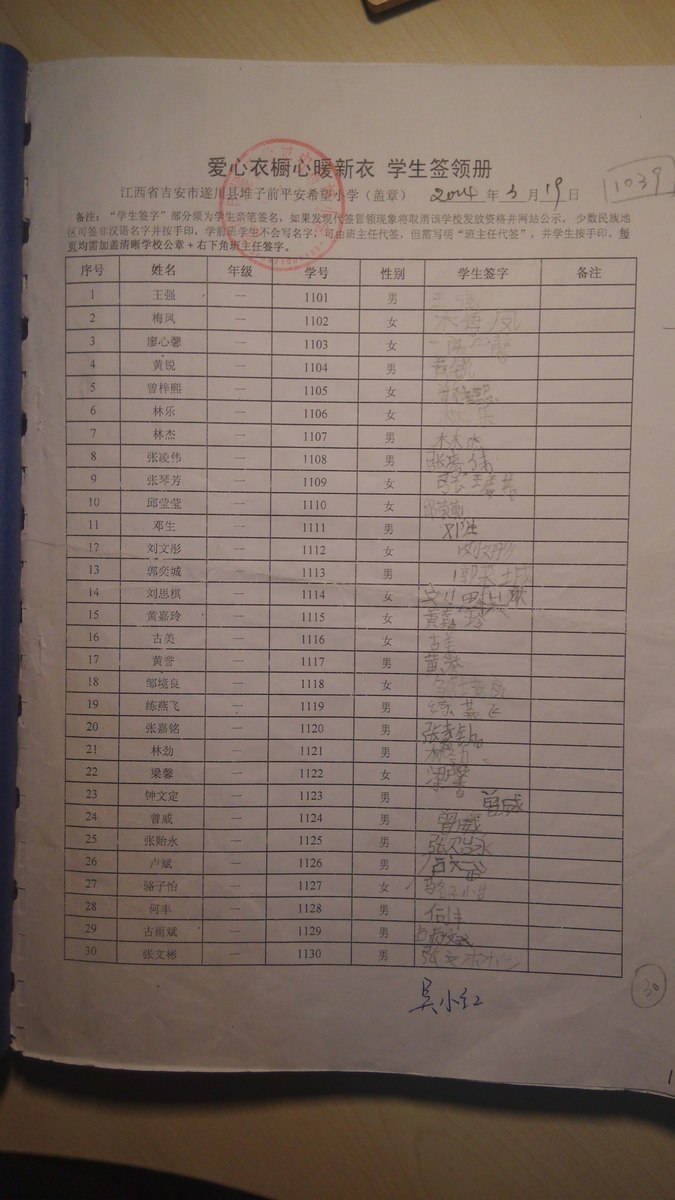 爱心衣橱心暖新衣 学生签领册
江西省吉安市遂川县堆子前平安希望小学（盖章） 2014 年 3 月 19 日
1039
备注：“学生签字”部分须为学生亲笔签名，如果发现代签冒领现象将取消该学校发放资格并网站公示。少数民族地
区可签非汉语名字并按手印。学前班学生不会写名字；可由班主任代签，但需写明“班主任代签”，并学生按手印。每
页均需加盖清晰学校公章＋右下角班主任签字。
序号 姓名 年级 学号 性别 学生签字 备注
1 王强 一 1101 男 王强
2 梅凤 一 1102 女
3 廖心馨 一 1103 女
4 黄锐 一 1104 男 黄锐
5 曾梓熙 一 1105 女 曾梓熙
6 林乐 一 1106 女 林乐
7 林杰 一 1107 男 林杰
8 张凌伟 一 1108 男 张凌伟
9 张琴芳 一 1109 女
10 邱莹莹 一 1110 女 邱莹莹
11 邓生 一 1111 男 邓生
12 刘文彤 一 1112 女 刘文彤
13 郭奕城 一 1113 男 郭奕城
14 刘思棋 一 1114 女 刘思棋
15 黄嘉玲 一 1115 女 黄嘉玲
16 古美 一 1116 女 古美
17 黄誉 一 1117 男 黄誉
18 邹境良 一 1118 女
19 练燕飞 一 1119 男 练燕飞
20 张嘉铭 一 1120 男 张嘉铭
21 林劲 一 1121 男 林劲
22 梁馨 一 1122 女 梁馨
23 钟文定 一 1123 男 曾威
24 曾威 一 1124 男 曾威
25 张贻永 一 1125 男 张贻永
26 卢斌 一 1126 男 卢斌
27 骆子怡 一 1127 女 骆子怡
28 何丰 一 1128 男 何丰
29 古雨斌 一 1129 男 古雨斌
30 张文彬 一 1130 男 张文彬
吴小红
30